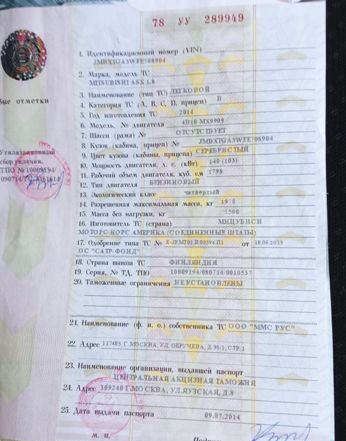 78 УУ 289949
1. Идентификационный номер (VIN)
2. Марка, модель ТС
MITSUBISHI ASX 1.8
3. Наименование (тип ТС) ЛЕГКОВОЙ
4. Категория ТС (А, В, С, D, прицеп) В
5. Год изготовления ТС 2014
6. Модель, № двигателя 4B10 MX9909
7. Шасси (рама) № ОТСУТСТВУЕТ
8. Кузов (кабина, прицеп) №
9. Цвет кузова (кабины, прицепа) СЕРЕБРИСТЫЙ
10. Мощность двигателя, л. с. (кВт) 140 (103)
11. Рабочий объем двигателя, куб. см 1798
12. Тип двигателя БЕНЗИНОВЫЙ
13. Экологический класс четвертый
14. Разрешенная максимальная масса, кг 1970
15. Масса без нагрузки, кг 1500
16. Изготовитель ТС (страна) МИЦУБИСИ
МОТОРС НОРС АМЕРИКА (СОЕДИНЕННЫЕ ШТАТЫ)
17. Одобрение типа ТС № от 18.06.2013
ОС "САТР-ФОНД"
18. Страна вывоза ТС ФИНЛЯНДИЯ
19. Серия, № ТД, ТПО 10009194/080714/0010557
20. Таможенные ограничения НЕ УСТАНОВЛЕНЫ
21. Наименование (ф. и. о.) собственника ТС ООО "ММС РУС"
22. Адрес 117485, Г. МОСКВА, УЛ. ОБРУЧЕВА, Д.30/1, СТР.1
23. Наименование организации, выдавшей паспорт
ЦЕНТРАЛЬНАЯ АКЦИЗНАЯ ТАМОЖНЯ
24. Адрес 109240 Г.МОСКВА, УЛ.ЯУЗСКАЯ, Д.8
25. Дата выдачи паспорта 09.07.2014
М. П.
отметки
Утилизационный
сбор уплачен.
ТПО № 10009194/